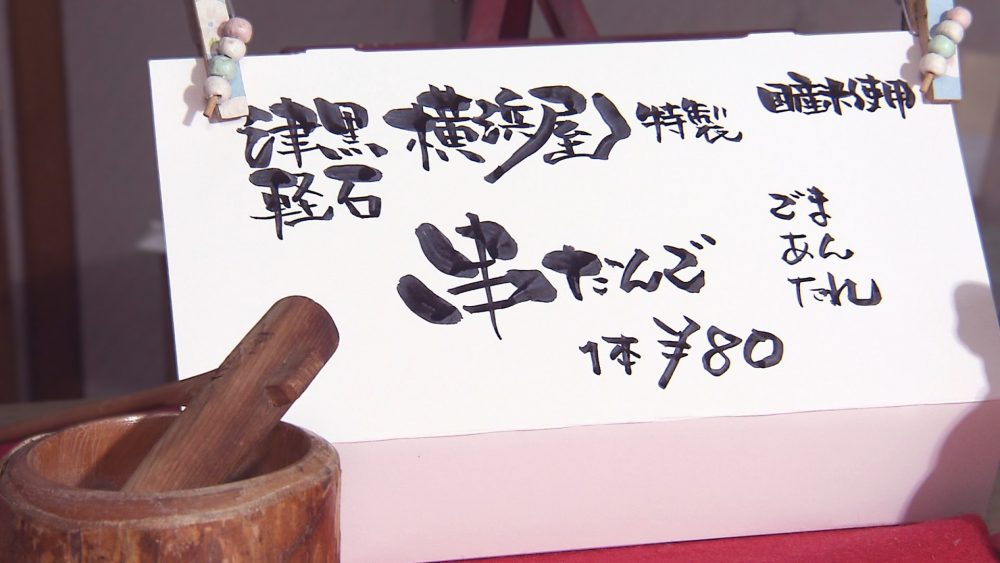 津軽黒石 横浜屋 特製
国産米使用
串だんご
1本¥80
ごま
あん
たれ